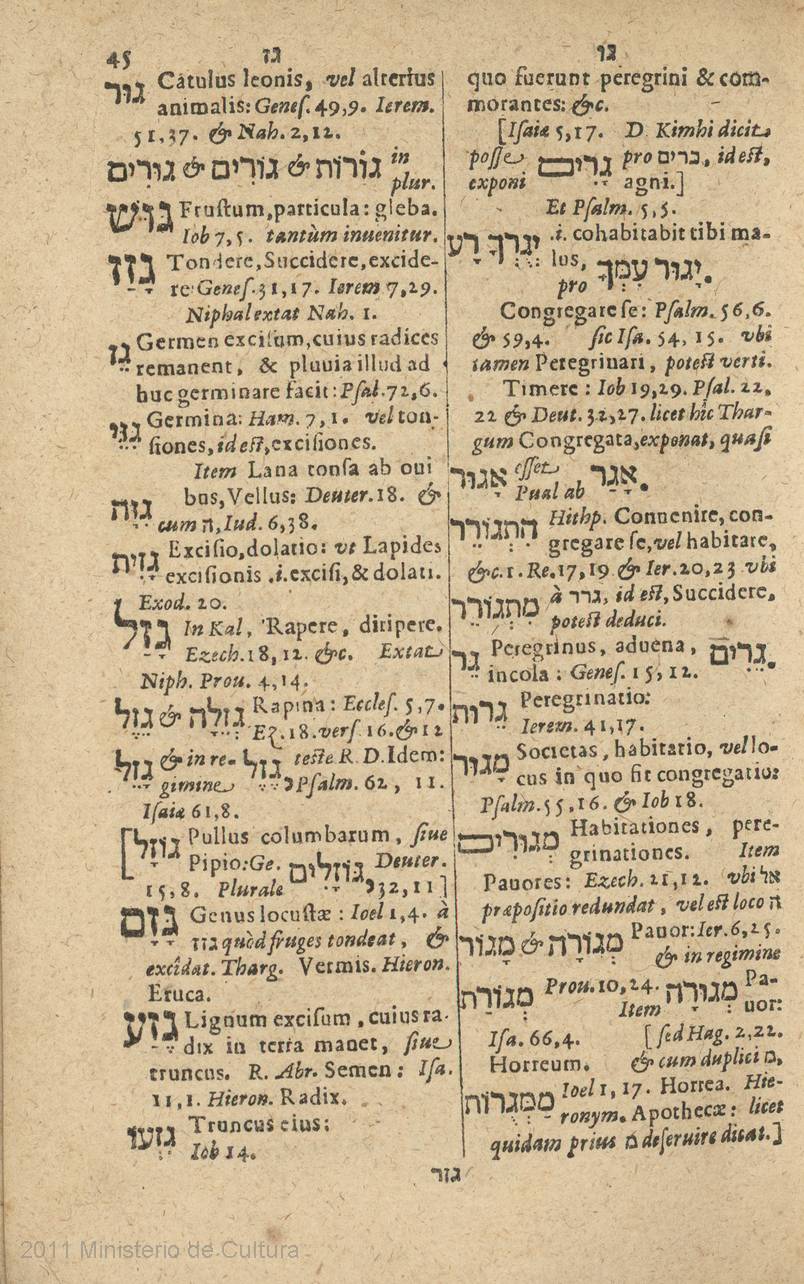 45 גז גו
quo fuerunt peregrini & com-
morantes: &c.
[Isaiæ 5,17. D. Kimhi dicit
posse גרים pro כרים, id est,
exponi agni.]
Et Psalm. 5,5.
יגרך רע .i. cohabitabit tibi ma-
lus, pro יגור עמך.
Congregare se: Psalm. 56,6.
& 59,4. sic Isa. 54, 15. vbi
tamen Peregrinari, potest verti.
Timere: Iob 19,29. Psal. 22,
22 & Deut. 32,27. licet hic Thar-
gum Congregata, exponat, quasi
אגור esset Pual ab אגר.
התגורר Hithp. Conuenire, con-
gregare se, vel habitare,
&c. 1. Re. 17,19 & Ier. 20,23 vbi
מתגורר à גרר, id est, Succidere,
potest deduci.
גר Peregrinus, aduena, גרים.
incola: Genes. 15, 12.
גרות Peregrinatio:
Ierem. 41,17.
מגור Societas, habitatio, vel lo-
cus in quo fit congregatio:
Psalm. 55,16. & Iob 18.
מגורים Habitationes, pere-
grinationes. Item
Pauores: Ezech. 21,12. vbi אל
præpositio redundat, vel est loco ה
מגור & מגורה Pauor: Ier. 6,25.
& in regimine
מגורת Prou. 10,24. מגורה Pa-
Item uor:
Isa. 66,4. [sed Hag. 2,22.
Horreum. & cum duplici מ,
ממגרות Ioel 1, 17. Horrea. Hie-
ronym. Apothecæ: licet
quidam prius מ deseruire dicat.]
גור Catulus leonis, vel alterius
animalis: Genes. 49,9. Ierem.
51,37. & Nah. 2,12.
גורים & גורים & גורות in plur.
גוש Frustum, particula: gleba.
Iob 7,5. tantùm inuenitur.
גזז Tondere, Succidere, excide-
re Genes. 31,17. Ierem 7,29.
Niphal extat Nah. 1.
גז Germen excisum, cuius radices
remanent, & pluuia illud ad
huc germinare facit: Psal. 72,6.
גזי Germina: Ham. 7,1. vel ton-
siones, id est, excisiones.
Item Lana tonsa ab oui
bus, Vellus: Deuter. 18. &
גזה cum ה, Iud. 6,38.
גזית Excisio, dolatio: vt Lapides
excisionis .i. excisi, & dolati.
Exod. 20.
גזל In Kal, Rapere, diripere.
Ezech. 18,12. &c. Extat
Niph. Prou. 4,14.
גזל & גזלה Rapina: Eccles. 5,7.
Ez. 18. vers 16. & 12
גזל & in re- גזל teste R. D. Idem:
gimine Psalm. 62, 11.
Isaiæ 61,8.
[גוזל Pullus columbarum, siue
Pipio: Ge. גוזלים Deuter.
15,8. Plurale 32,11]
גזם Genus locustæ: Ioel 1,4. à
גוז quòd fruges tondeat, &
excidat. Tharg. Vermis. Hieron.
Eruca.
גזע Lignum excisum, cuius ra-
dix in terra manet, siue
truncus. R. Abr. Semen: Isa.
11,1. Hieron. Radix.
גזעו Truncus eius:
Iob 14.
גזר
2011 Ministerio de Cultura